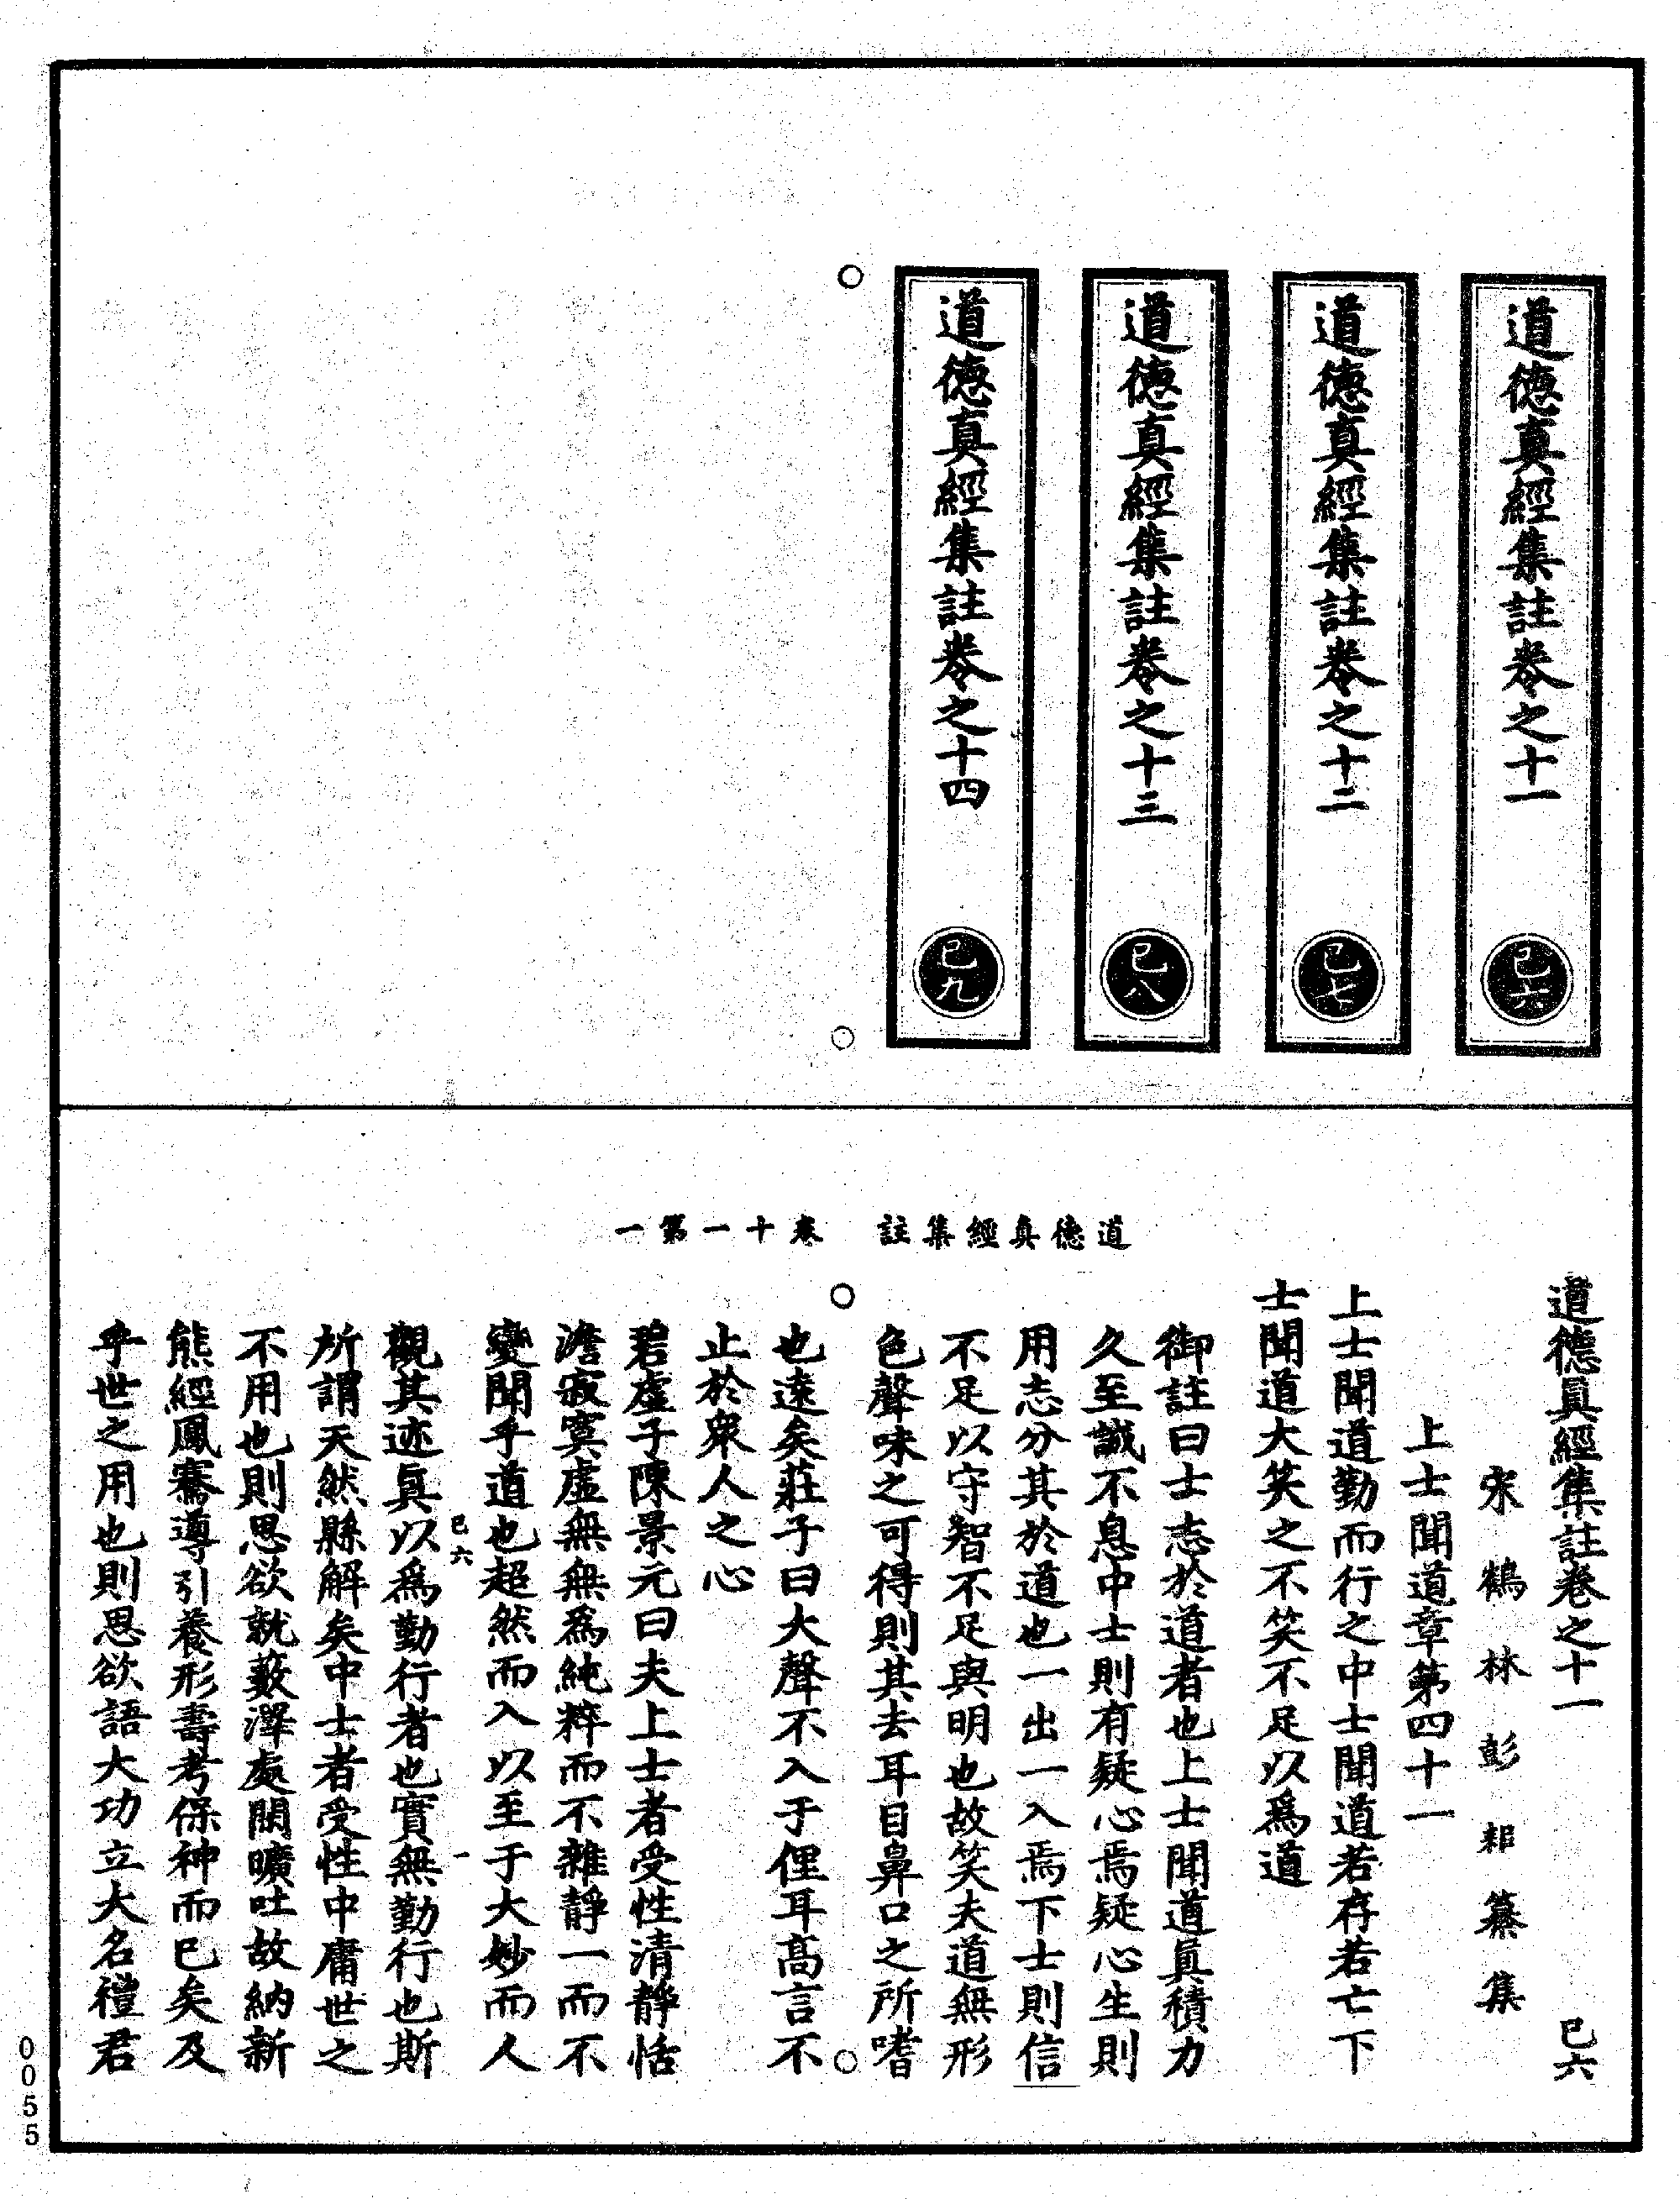 道德真經集註卷之十一
已六
道德真經集註卷之十二
已七
道德真經集註卷之十三
已八
道德真經集註卷之十四
已九
道德真經集註　卷十一第一
道德眞經集註卷之十一　已六
宋鶴林彭耜纂集
上士聞道章第四十一
上士聞道勤而行之中士聞道若存若亡下
士聞道大笑之不笑不足以爲道
御註曰士志於道者也上士聞道眞積力
久至誠不息中士則有疑心焉疑心生則
用志分其於道也一出一入焉下士則信
不足以守智不足與明也故笑夫道無形
色聲味之可得則其去耳目鼻口之所嗜
也遠矣莊子曰大聲不入于俚耳高言不
止於衆人之心
碧虛子陳景元曰夫上士者受性清靜恬
澹寂寞虛無無爲純粹而不雜靜一而不
變聞乎道也超然而入以至于大妙而人
已六　一
觀其迹眞以爲勤行者也實無勤行也斯
所謂天然縣解矣中士者受性中庸世之
不用也則思欲就藪澤處閒曠吐故納新
熊經鳳騫導引養形壽考保神而已矣及
乎世之用也則思欲語大功立大名禮君
0055